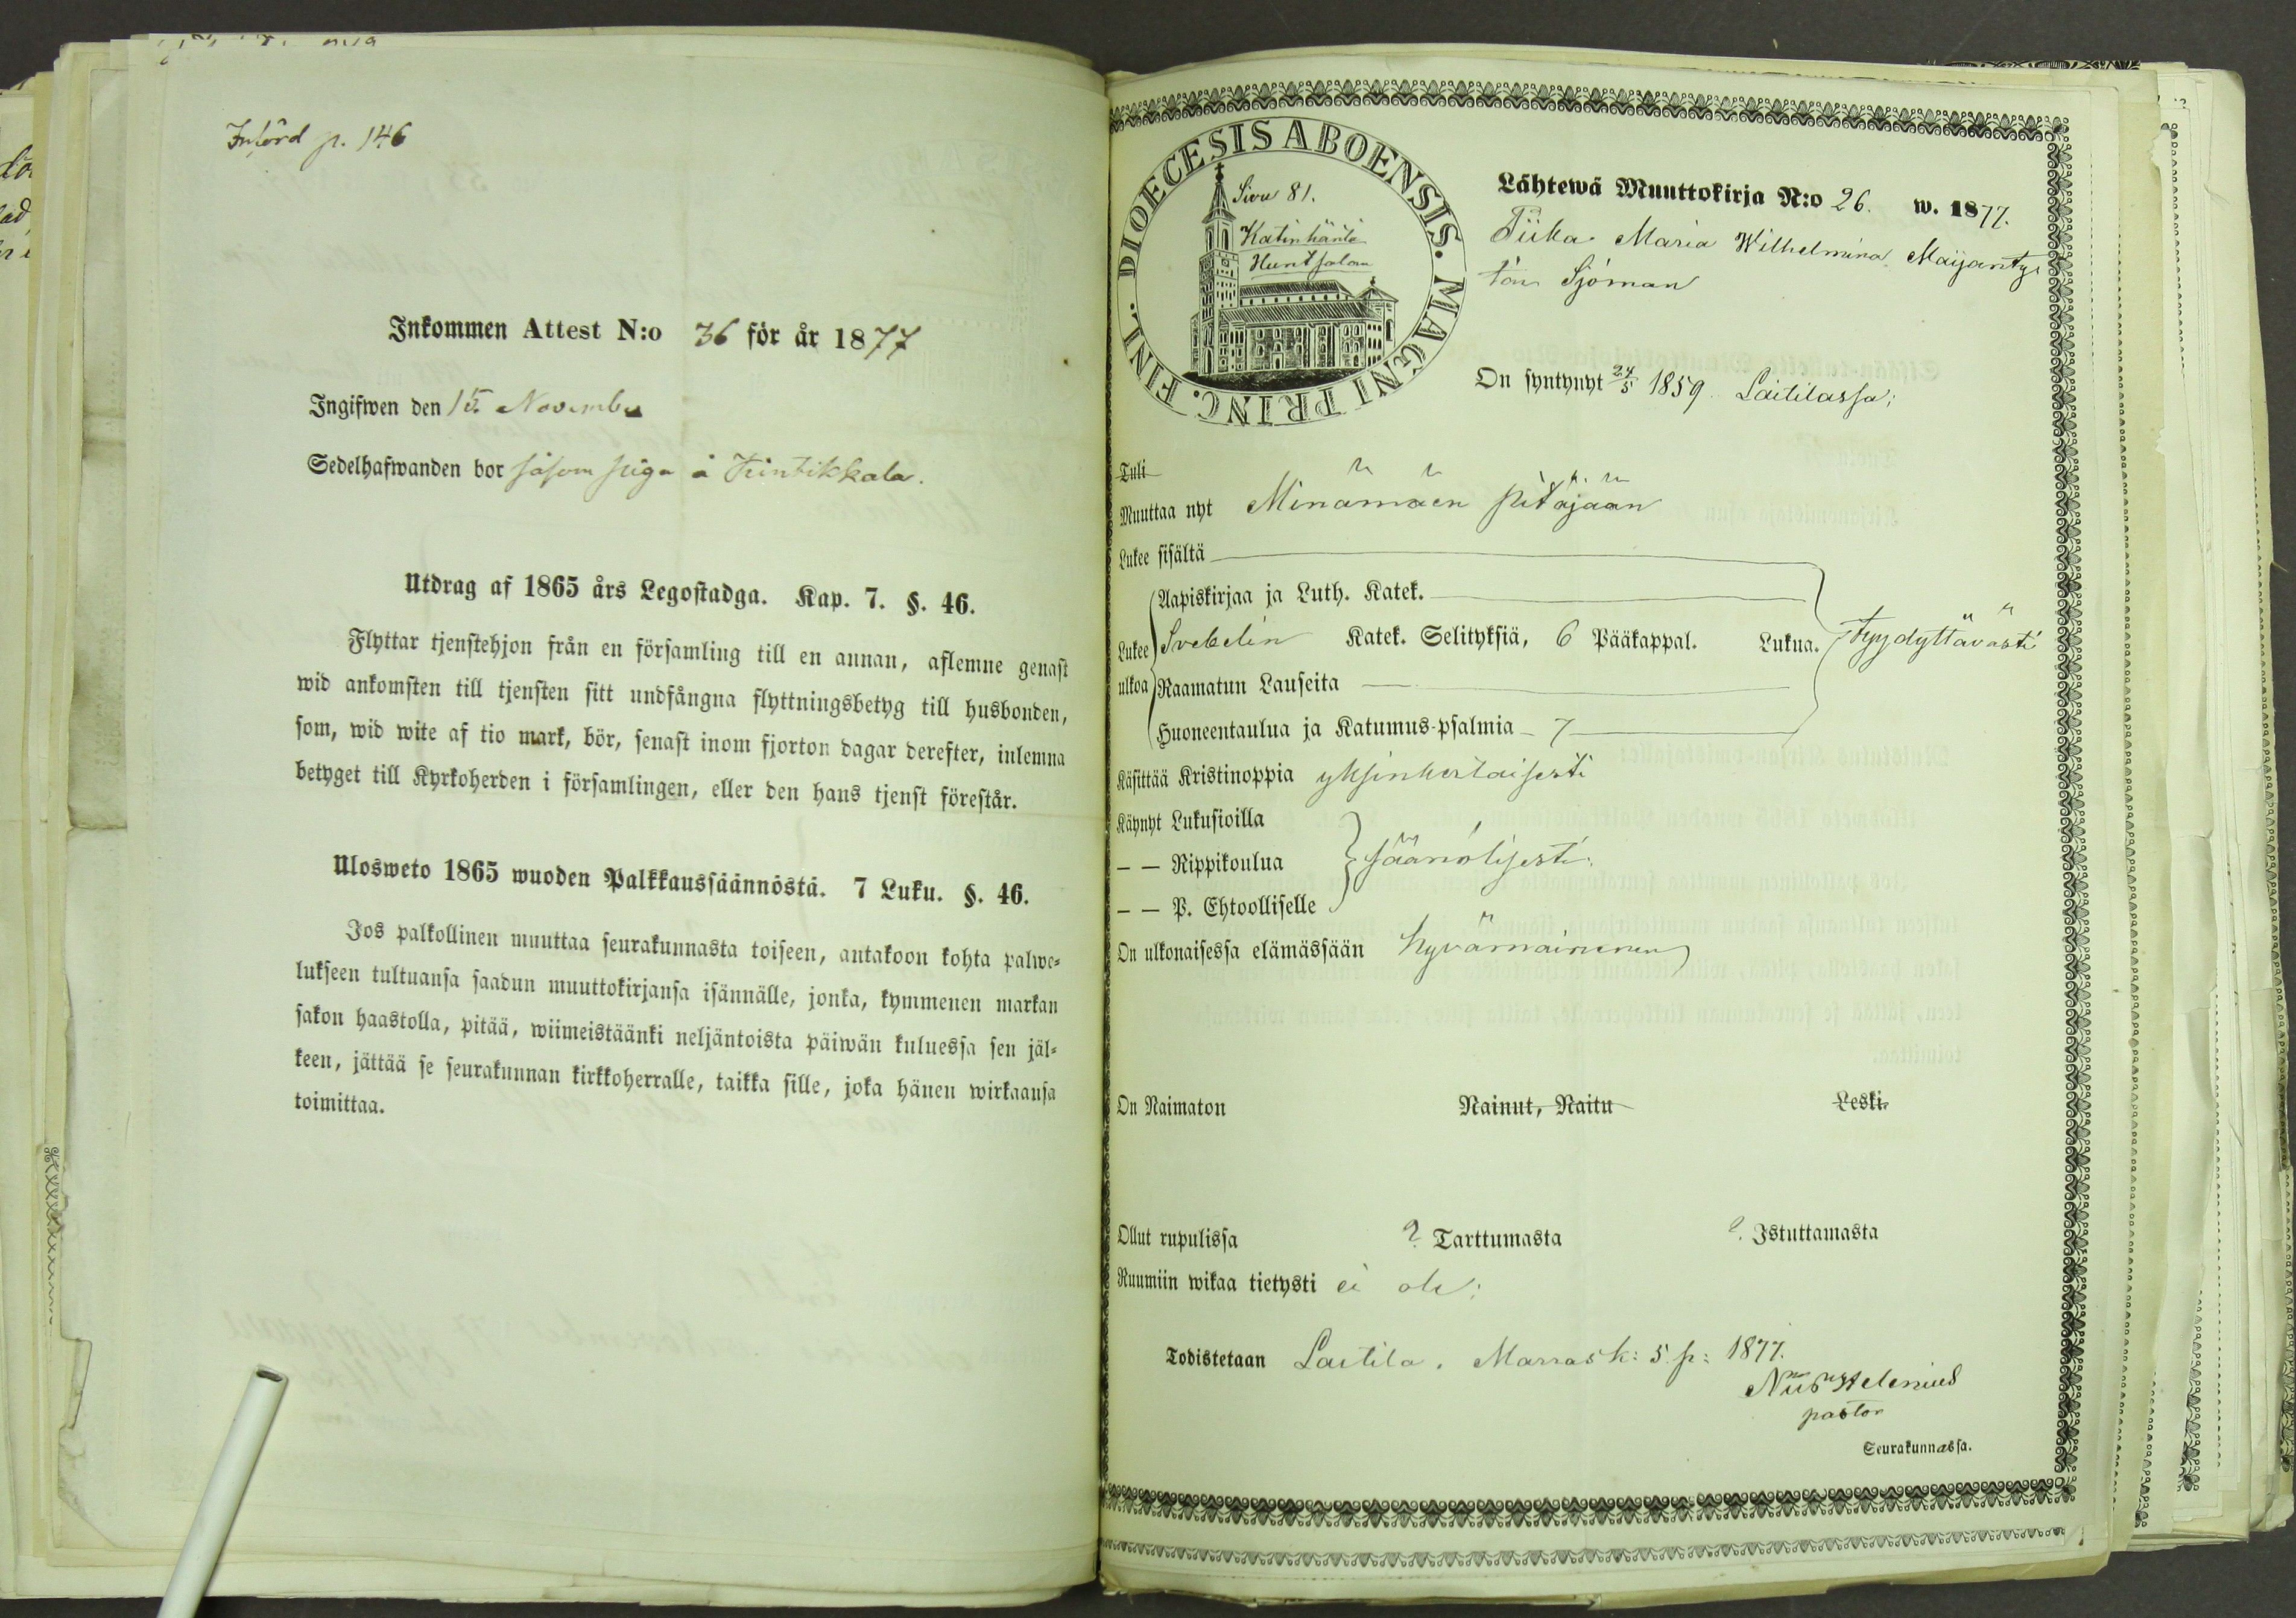 Införd p. 146
Inkommen Attest N:o 36 för år 1877
Ingifwen den 15 November
Sedelhafwanden bor såsom piga å Trintikkala.
Utdrag af 1865 års Legostadga. Kap. 7. §. 46.
Flyttar tjenstehjon från en församling till en annan, aflemne genast
wid ankomsten till tjensten sitt undfångna flyttningsbetyg till husbonden,
som, wid wite af tio mark, bör, senast inom fjorton dagar derefter, inlemna
betyget till Kyrkoherden i församlingen, eller den hans tjenst förestår.
Ulosweto 1865 wuoden Palkkaussäännöstä. 7 Luku. §. 46.
Jos palkollinen muuttaa seurakunnasta toiseen, antakoon kohta palwe-
lukseen tultuansa saadun muuttokirjansa isännälle, jonka, kymmenen markan
sakon haastolla, pitää, wiimeistäänki neljäntoista päiwän kuluessa sen jäl-
keen, jättää se seurakunnan kirkkoherralle, taikka sille, joka hänen wirkaansa
toimittaa.
DIOECESIS ABOENSIS. MAGNI PRINC. FINL.
Sivu 81.
Katinhäntä
Huntsalon
Lähtewä Muuttokirja N:o 26. w. 1877.
Piika Maria Wilhelmina
tön Sjöman
On syntynyt 24/5 1859. Laitilassa;
Tuli
Muuttaa nyt Minämäen pitäjään
Lukee sisältä
Aapiskirjaa ja Luth. Katek.
Lukee ulkoa Svebelin Katek. Selityksiä, 6 Pääkappal. Lukua. tyydyttävästi
Raamatun Lauseita
Huoneentaulua ja Katumus-psalmia 7
Käsittää Kristinoppia yksinkertaisesti
Käynyt Lukusioilla
— — Rippikoulua säänölisesti.
— — P. Ehtoolliselle
On ulkonaisessa elämässään hyvämaineinen
On Naimaton Nainut, Naitu Leski
Ollut rupulissa ? Tarttumasta ? Istuttamasta
Ruumiin wikaa tietysti ei ole;
Todistetaan Laitila. Marrask: 5 p: 1877.
Helenius
pastor
Seurakunnassa.